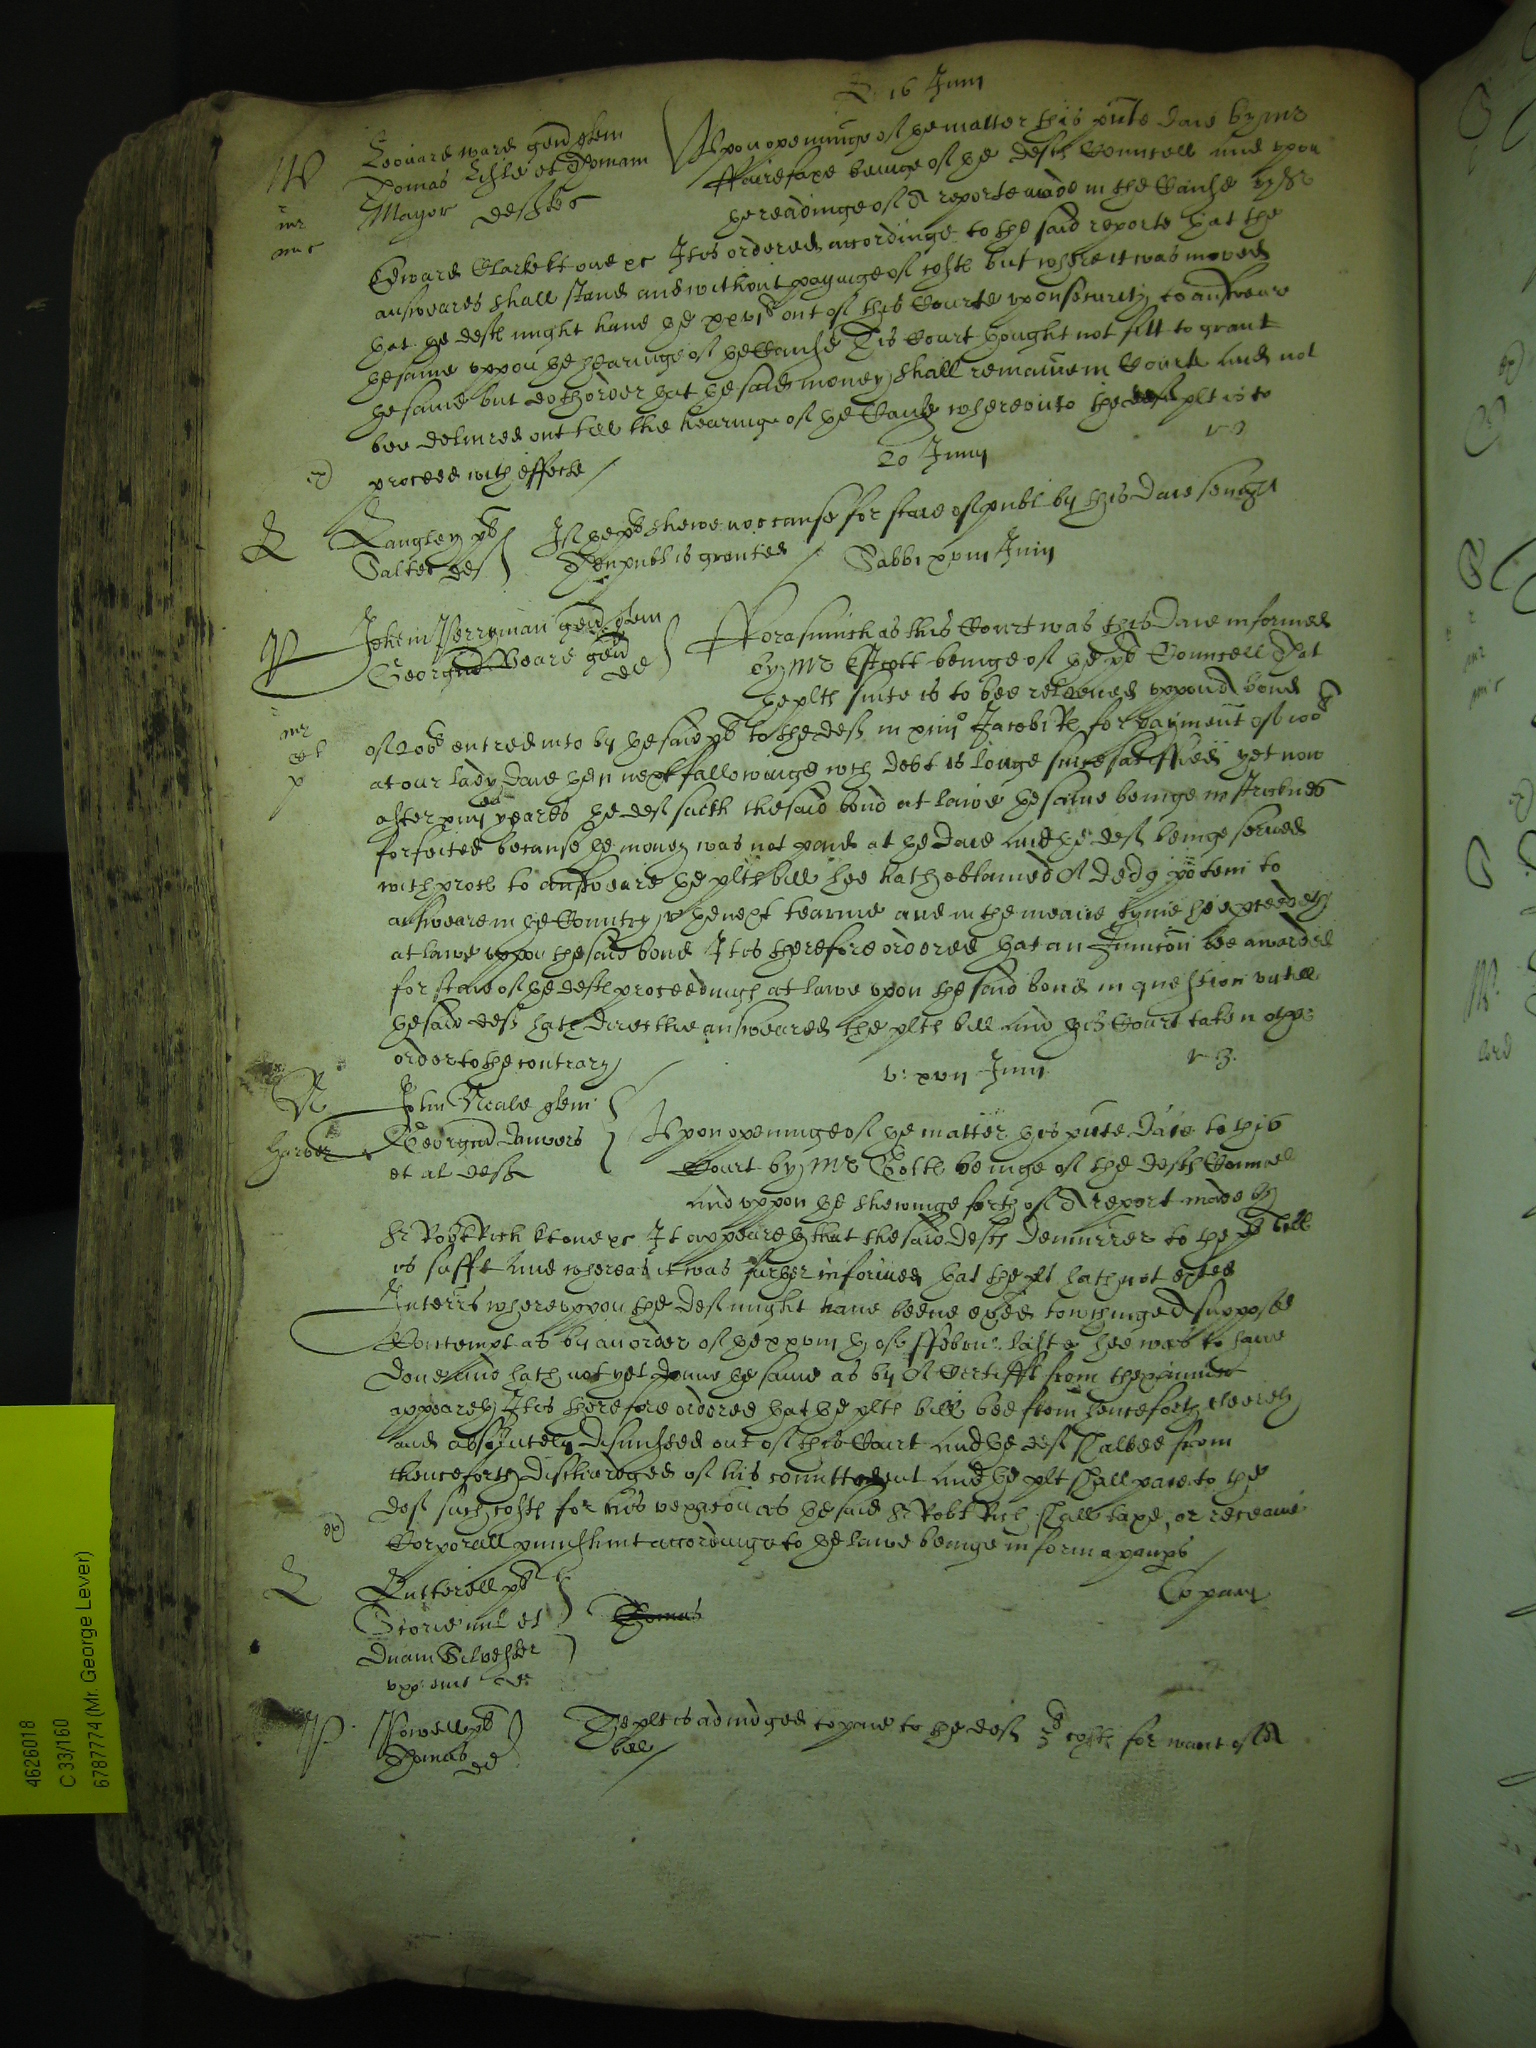 16 Junii
W
Leonard ware gen quer
Thomas Lisle et Thomam
Mayor deftes
Upon openinge of the matter this pnte daie by Mr
ffairefaxe beinge of the defts Councell and upon
the readinge of A reporte made in the Cause by Sr
Edward Clarke kt one &c It is ordered accordinge to the said reporte that the
answeares shall stand and without payinge of costs but where it was moved
that the defts might have the xxvis out of this Courte upon securety to answeare
the same uppon the hearinge of the Cause This Court thought not fitt to grant
the same but doth order that the said money shall remaine in Courte and not
bee delivred out till the hearinge of the Cause whereunto the plt is to
proceed with effecte
20 Junii
L
Langley pl
Salter def
If the pl shewe no cause for staie of publ by this daie senight
Then publ is granted
Sabbi xviii Junii
P
John Perryman gen quer
George Beare gen
de
Forasmuch as this Court was this daie informed
by Mr Estcott beinge of the pl Councell That
the plts suite is to bee releived uppon A bond
of 200l entred into by the said pl to the def in xiiiio Jacobi Rs for paiment of 100l
at our lady daie then next followinge wch debt is longe since satisffied yet now
after xiiii yeares the def sueth the said bond at lawe the same beinge in strictnes
forfeited because the money was not paied at the daie And the def beinge served
with proces to answeare the plts bill hee hath obtained A Ded potem to
answeare in the Country the next tearme and in the meane tyme he proceedeth
at lawe uppon the said bond It is therefore ordered that an Iniunccon bee awarded
for staie of the defts proceedings at lawe upon the said bond in question untill
the said def hath directlie answeared the plts bill And this Court taken other
order to the contrary
v: xvii Junii
N
John Neale quer
George Danvers
et al defts
Upon openinge of the matter this pnte daie to this
Court by Mr beinge of the defts Councell
And uppon the shewinge forth of A report made by
Sr Robt Rich kt one &c It appeareth that the said defts demurrer to the pl bill
is sufft And whereas it was further informed that the plt hath not exhted
Interrs whereuppon the def might have beene exed towchinge A supposed
Contempt as by an order of the xxviiith of ffebru: laste hee was to have
done and hath not yet donne the same as by A Certifft from the examiner
appeareth It is therefore ordered that the plts bill bee from henceforth cleerely
and absolutely dismissed out of this Court And the def shalbee from
thenceforth discharged of his comittment And the plt shall paie to the
def such costs for his vexacon as the said Sr Robt Rich shall taxe, or receave
Corporall punishmt accordinge to the lawe beinge in forma paupis
L
Lutterell pl
Storie mil et
Duam Silvester
uxor eius de
Thomas
P
Powell pl
Thomas
de
The plt is adiudged to paie to the def costs for want of A
bill
4626018
C 33/160
6787774 (Mr. George Lever)